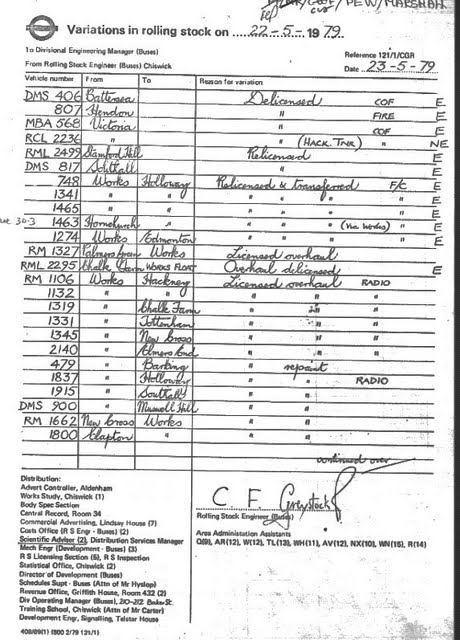 Variations in rolling stock on 22-5-1979.
To Divisional Engineering Manager (Buses)
Reference 121/1/CGR
From Rolling Stock Engineer (Buses) Chiswick
Date 23-5-79
Vehicle number From To Reason for variation
DMS 406 Battersea Delicensed COF E
807 Hendon " FIRE E
MBA 568 Victoria " COF E
RCL 2236 " " (HACK. TNR) NE
RML 2499 Stamford Hill Relicensed E
DMS 817 Southall " E
748 Works Holloway Relicensed & transferred F/C E
1341 " " " " " " E
1465 " " " " " " E
1463 Hornchurch " " " " (Via Works) " E
1274 Works Edmonton " " " " E
RM 1327 Palmers Green Works Licensed overhaul
RML 2295 Chalk Farm WORKS FLOAT Overhaul delicensed E
RM 1106 Works Hackney Licensed overhaul RADIO
1132 " " " " "
1319 " Chalk Farm " "
1331 " Tottenham " "
1345 " New Cross " " "
2140 " Elmers End " " "
479 " Barking " repaint
1837 " Holloway " " RADIO
1915 " Southall " "
DMS 900 " Muswell Hill " "
RM 1662 New Cross Works " "
1800 Clapton " " "
continued over
Distribution:
Advert Controller, Aldenham
Works Study, Chiswick (1)
Body Spec Section
Central Record, Room 34
Commercial Advertising, Lindsay House (7)
Costs Office (R S Engr - Buses) (2)
Scientific Adviser (2), Distribution Services Manager
Mech Engr (Development - Buses) (3)
R S Licensing Section (6), R S Inspection
Statistical Office, Chiswick (2)
Director of Development (Buses)
Schedules Supt - Buses (Attn of Mr Hyslop)
Revenue Office, Griffith House, Room 432 (2)
Div Operating Manager (Buses), 210-212 Baker St.
Training School, Chiswick (Attn of Mr Carter)
Development Engr, Signalling, Telstar House
C. F. Greystock
Rolling Stock Engineer (Buses)
Area Administation Assistants
Q(9), AR(12), W(12), TL(13), WH(11), AV(12), NX(10), WN(15), R(14)
408/89(1) (800 2/79 121/1)